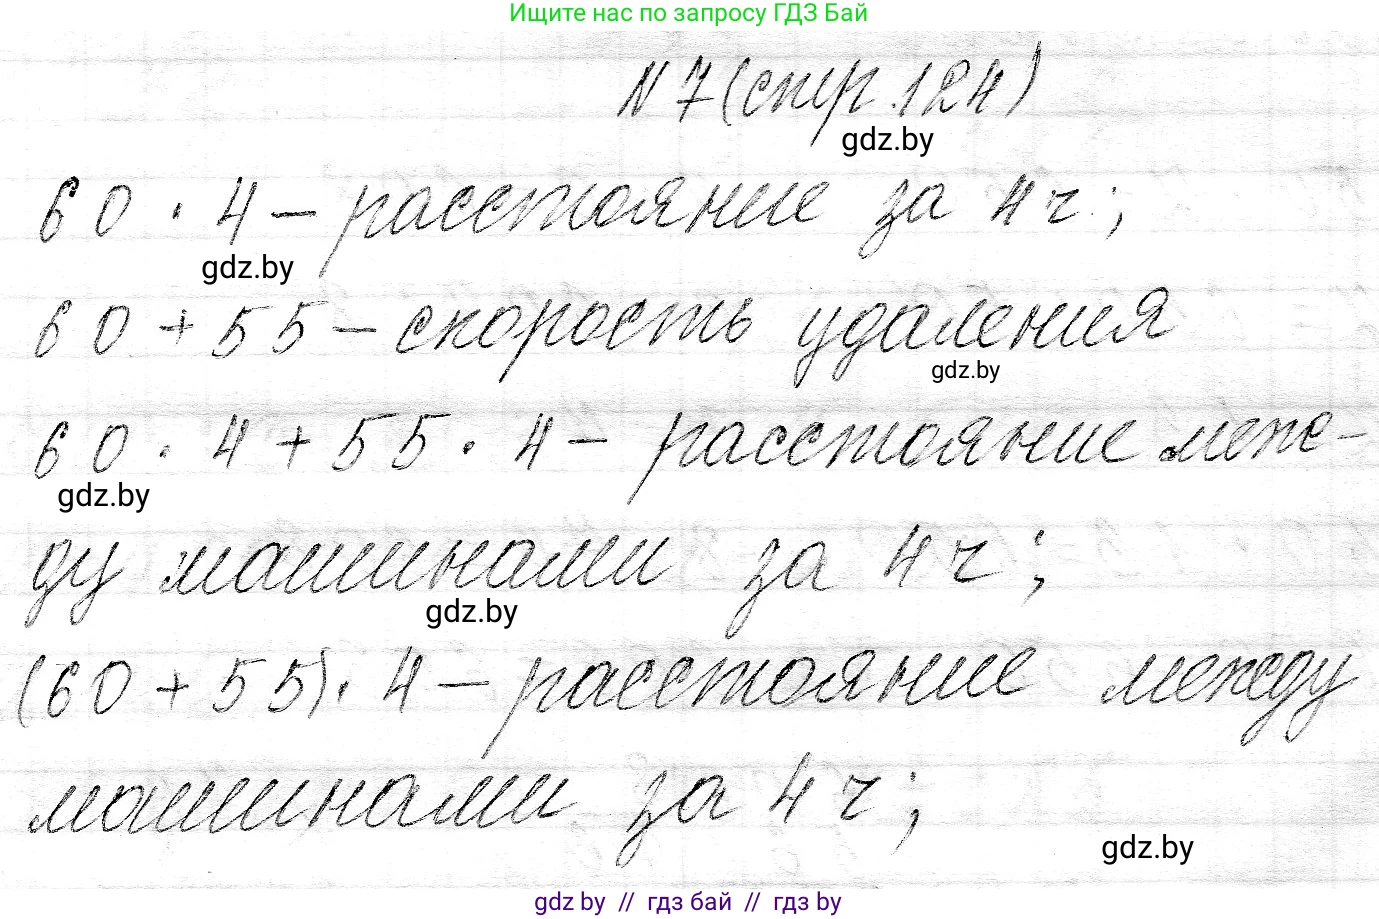 Ищите нас по запросу ГДЗ Бай
N 7 (стр. 124)
gdz.by
60 · 4 – расстояние за 4 ч;
gdz.by
60 + 55 – скорость удаления
gdz.by
60 · 4 + 55 · 4 – расстояние меж-
gdz.by
ду машинами за 4 ч;
gdz.by
(60 + 55) · 4 – расстояние между
машинами за 4 ч;
gdz.by
gdz by // гдз бай // гдз by